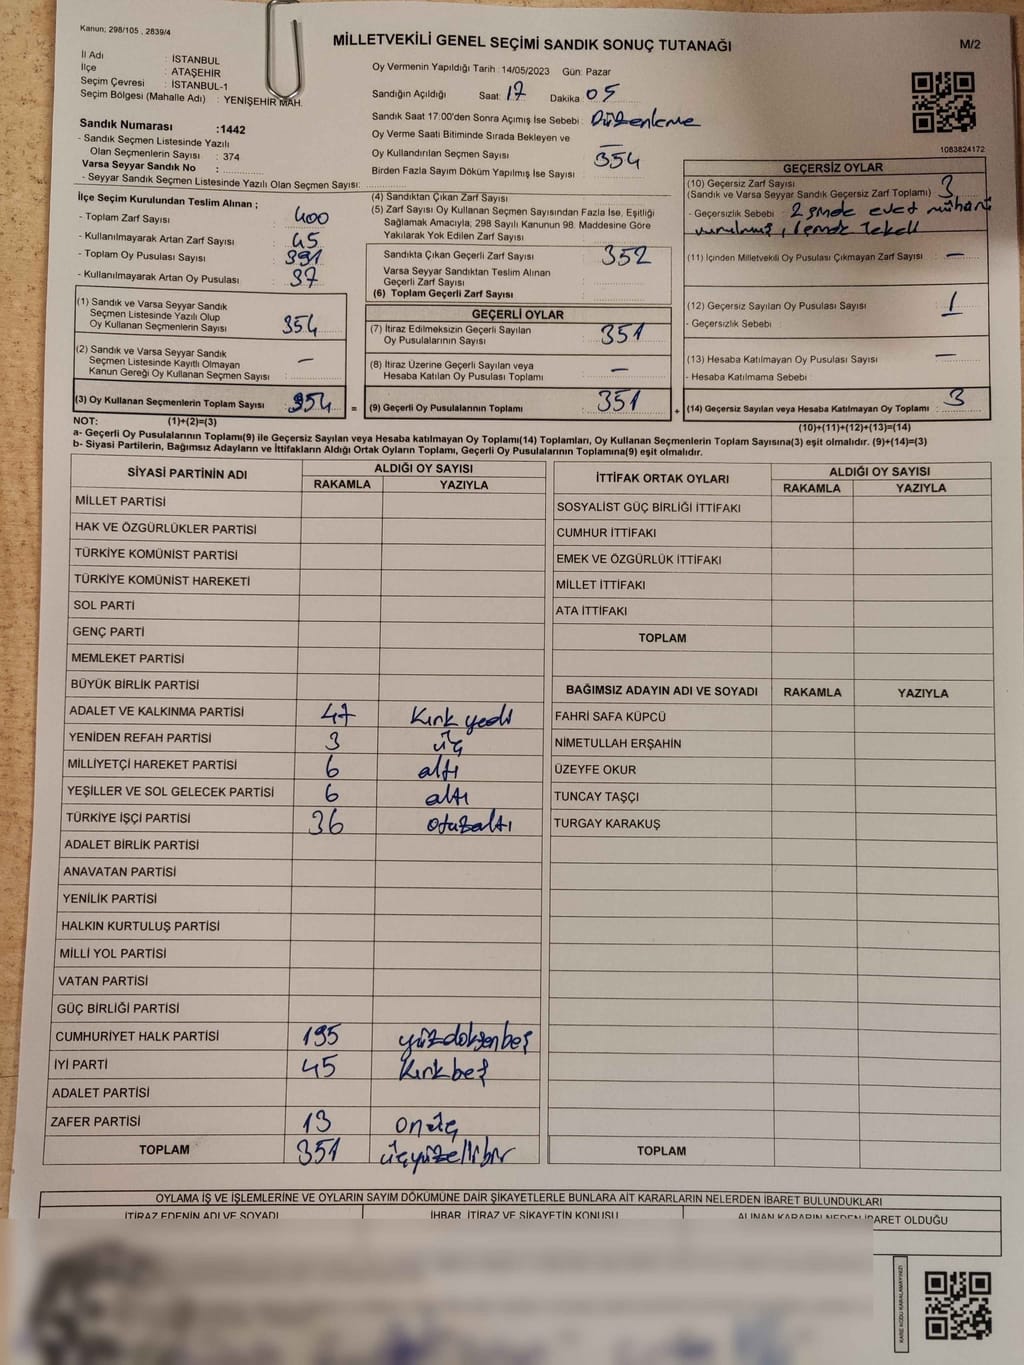 Kanun; 298/105 , 2839/4
MİLLETVEKİLİ GENEL SEÇİMİ SANDIK SONUÇ TUTANAĞI
M/2
İl Adı : İSTANBUL
İlçe : ATAŞEHİR
Seçim Çevresi : İSTANBUL-1
Seçim Bölgesi (Mahalle Adı) : YENİŞEHİR MAH.
Sandık Numarası :1442
- Sandık Seçmen Listesinde Yazılı
Olan Seçmenlerin Sayısı : 374
Varsa Seyyar Sandık No :
- Seyyar Sandık Seçmen Listesinde Yazılı Olan Seçmen Sayısı:
Oy Vermenin Yapıldığı Tarih : 14/05/2023 Gün: Pazar
Sandığın Açıldığı Saat: 17 Dakika: 05
Sandık Saat 17:00'den Sonra Açımış İse Sebebi : Düzenleme
Oy Verme Saati Bitiminde Sırada Bekleyen ve
Oy Kullandırılan Seçmen Sayısı —
Birden Fazla Sayım Döküm Yapılmış İse Sayısı : 354
1083824172
İlçe Seçim Kurulundan Teslim Alınan ;
- Toplam Zarf Sayısı : 400
- Kullanılmayarak Artan Zarf Sayısı : 45
- Toplam Oy Pusulası Sayısı : 391
- Kullanılmayarak Artan Oy Pusulası : 37
(1) Sandık ve Varsa Seyyar Sandık
Seçmen Listesinde Yazılı Olup
Oy Kullanan Seçmenlerin Sayısı : 354
(2) Sandık ve Varsa Seyyar Sandık
Seçmen Listesinde Kayıtlı Olmayan
Kanun Gereği Oy Kullanan Seçmen Sayısı : —
(3) Oy Kullanan Seçmenlerin Toplam Sayısı : 354 =
(1)+(2)=(3)
(4) Sandıktan Çıkan Zarf Sayısı
(5) Zarf Sayısı Oy Kullanan Seçmen Sayısından Fazla İse, Eşitliği
Sağlamak Amacıyla, 298 Sayılı Kanunun 98. Maddesine Göre
Yakılarak Yok Edilen Zarf Sayısı :
Sandıkta Çıkan Geçerli Zarf Sayısı : 352
Varsa Seyyar Sandıktan Teslim Alınan
Geçerli Zarf Sayısı :
(6) Toplam Geçerli Zarf Sayısı :
GEÇERLİ OYLAR
(7) İtiraz Edilmeksizin Geçerli Sayılan
Oy Pusulalarının Sayısı : 351
(8) İtiraz Üzerine Geçerli Sayılan veya
Hesaba Katılan Oy Pusulası Toplamı : —
(9) Geçerli Oy Pusulalarının Toplamı : 351 +
GEÇERSİZ OYLAR
(10) Geçersiz Zarf Sayısı
(Sandık ve Varsa Seyyar Sandık Geçersiz Zarf Toplamı) : 3
- Geçersizlik Sebebi : evet mührü
vurulmuş,
(11) İçinden Milletvekili Oy Pusulası Çıkmayan Zarf Sayısı : —
(12) Geçersiz Sayılan Oy Pusulası Sayısı : 1
- Geçersizlik Sebebi :
(13) Hesaba Katılmayan Oy Pusulası Sayısı : —
- Hesaba Katılmama Sebebi :
(14) Geçersiz Sayılan veya Hesaba Katılmayan Oy Toplamı : 3
(10)+(11)+(12)+(13)=(14)
NOT:
a- Geçerli Oy Pusulalarının Toplamı(9) ile Geçersiz Sayılan veya Hesaba katılmayan Oy Toplamı(14) Toplamları, Oy Kullanan Seçmenlerin Toplam Sayısına(3) eşit olmalıdır. (9)+(14)=(3)
b- Siyasi Partilerin, Bağımsız Adayların ve İttifakların Aldığı Ortak Oyların Toplamı, Geçerli Oy Pusulalarının Toplamına(9) eşit olmalıdır.
SİYASİ PARTİNİN ADI ALDIĞI OY SAYISI
RAKAMLA YAZIYLA
MİLLET PARTİSİ
HAK VE ÖZGÜRLÜKLER PARTİSİ
TÜRKİYE KOMÜNİST PARTİSİ
TÜRKİYE KOMÜNİST HAREKETİ
SOL PARTİ
GENÇ PARTİ
MEMLEKET PARTİSİ
BÜYÜK BİRLİK PARTİSİ
ADALET VE KALKINMA PARTİSİ 47 Kırk yedi
YENİDEN REFAH PARTİSİ 3 üç
MİLLİYETÇİ HAREKET PARTİSİ 6 altı
YEŞİLLER VE SOL GELECEK PARTİSİ 6 altı
TÜRKİYE İŞÇİ PARTİSİ 36 otuzaltı
ADALET BİRLİK PARTİSİ
ANAVATAN PARTİSİ
YENİLİK PARTİSİ
HALKIN KURTULUŞ PARTİSİ
MİLLİ YOL PARTİSİ
VATAN PARTİSİ
GÜÇ BİRLİĞİ PARTİSİ
CUMHURİYET HALK PARTİSİ 195 yüzdoksanbeş
İYİ PARTİ 45 Kırkbeş
ADALET PARTİSİ
ZAFER PARTİSİ 13 onüç
TOPLAM 351 üçyüzellibir
İTTİFAK ORTAK OYLARI ALDIĞI OY SAYISI
RAKAMLA YAZIYLA
SOSYALİST GÜÇ BİRLİĞİ İTTİFAKI
CUMHUR İTTİFAKI
EMEK VE ÖZGÜRLÜK İTTİFAKI
MİLLET İTTİFAKI
ATA İTTİFAKI
TOPLAM
BAĞIMSIZ ADAYIN ADI VE SOYADI RAKAMLA YAZIYLA
FAHRİ SAFA KÜPCÜ
NİMETULLAH ERŞAHİN
ÜZEYFE OKUR
TUNCAY TAŞÇI
TURGAY KARAKUŞ
TOPLAM
OYLAMA İŞ VE İŞLEMLERİNE VE OYLARIN SAYIM DÖKÜMÜNE DAİR ŞİKAYETLERLE BUNLARA AİT KARARLARIN NELERDEN İBARET BULUNDUKLARI
İTİRAZ EDENİN ADI VE SOYADI İHBAR, İTİRAZ VE ŞİKAYETİN KONUSU ALINAN KARARIN NEDEN İBARET OLDUĞU
KARE KODU KARALAMAYINIZ!